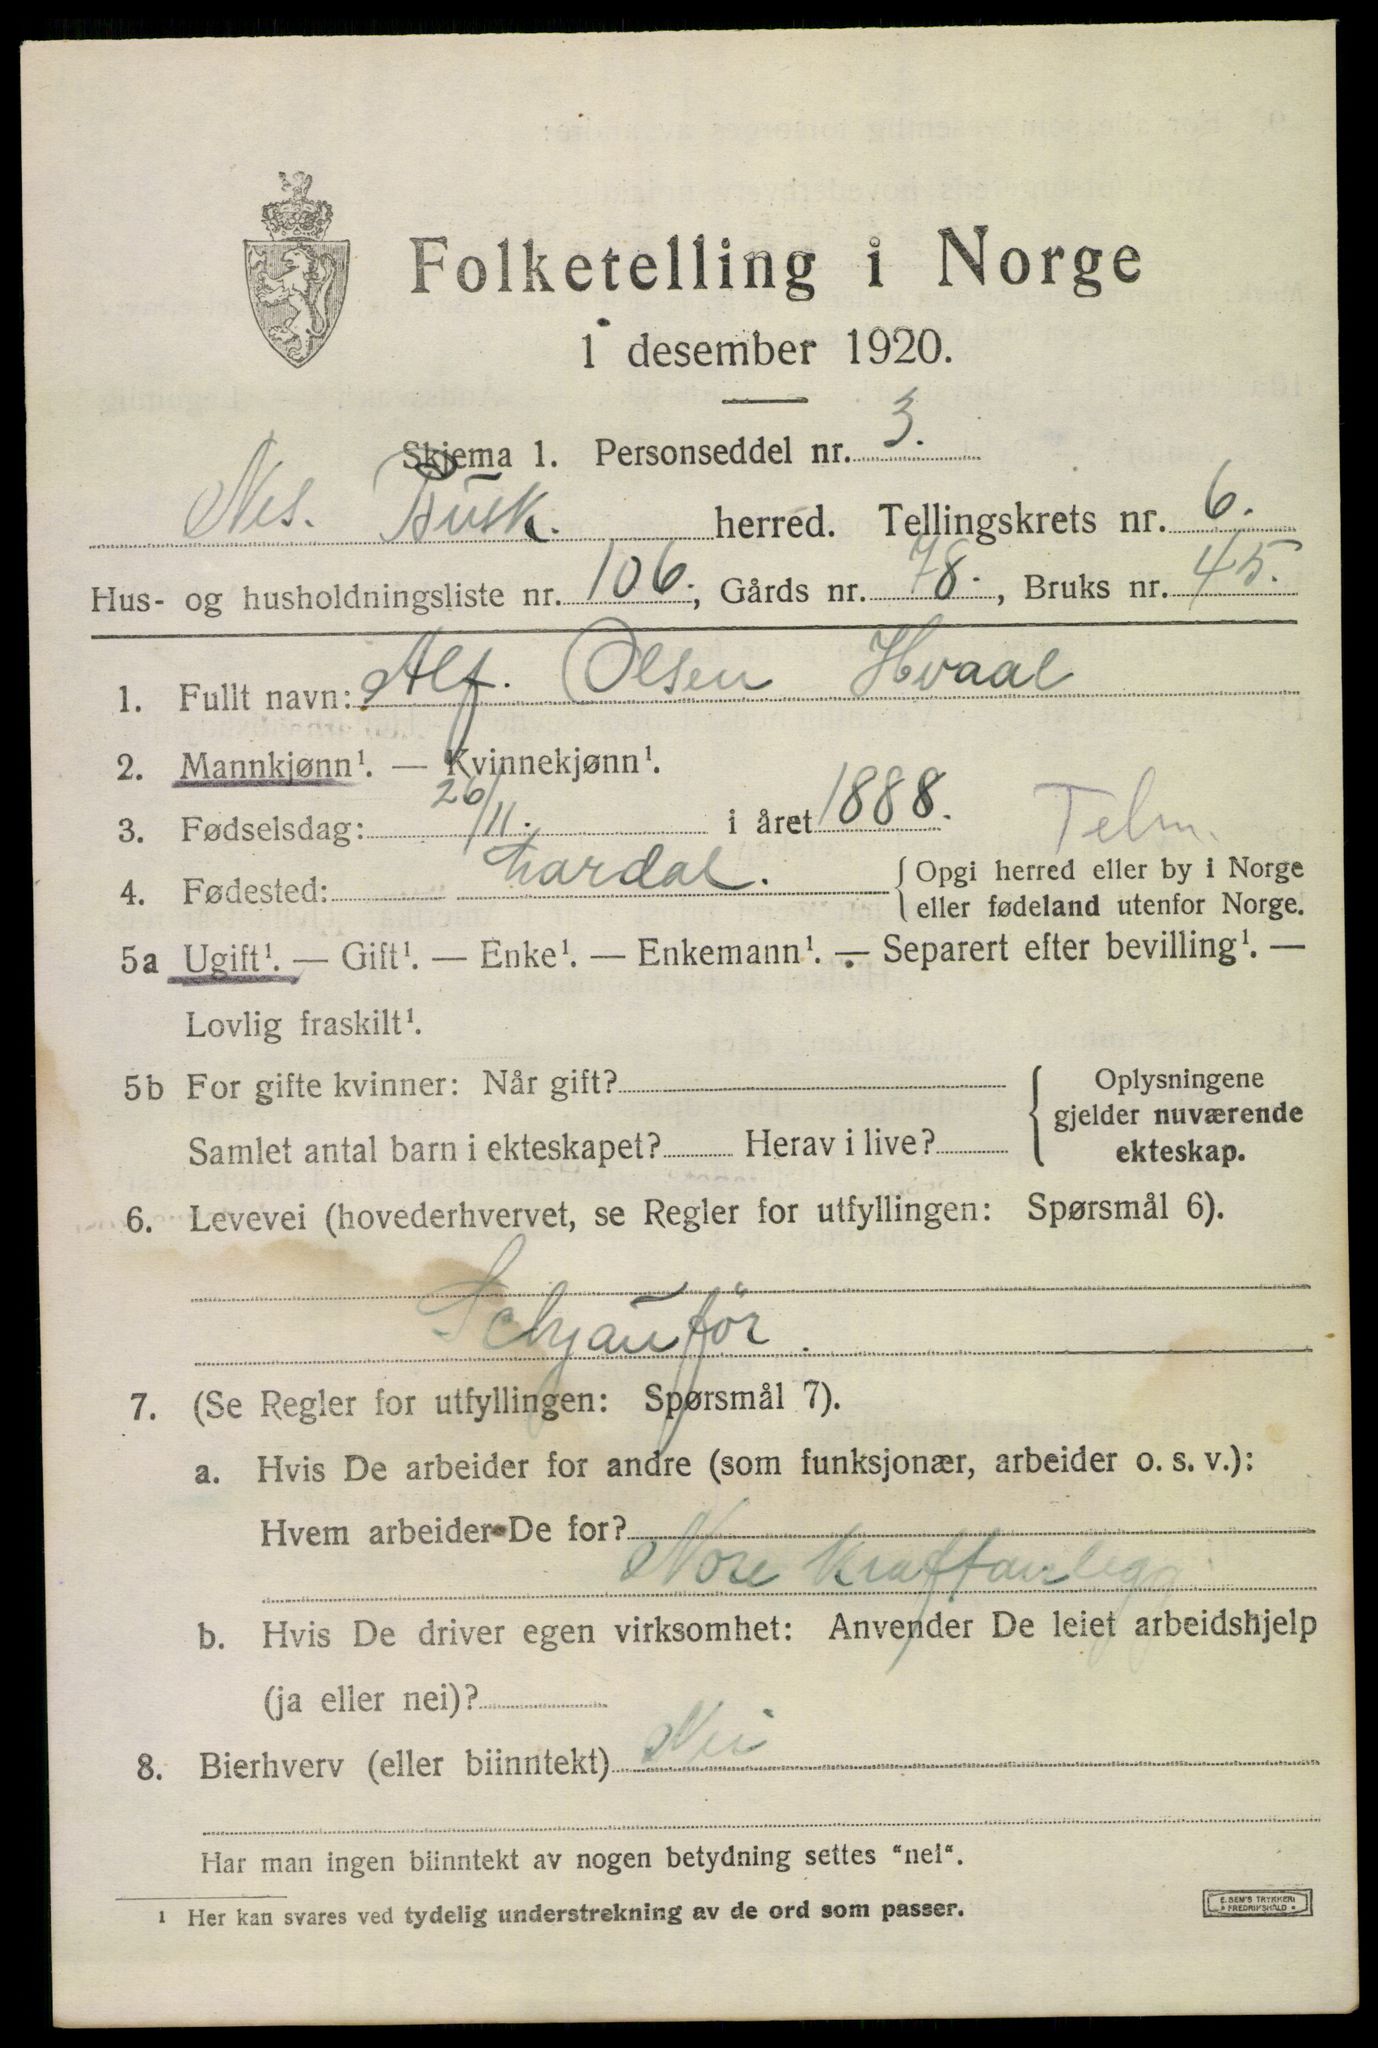 Folketelling i Norge
1 desember 1920.
Skjema 1. Personseddel nr. 3.
Nes. Busk. herred. Tellingskrets nr. 6.
Hus- og husholdningsliste nr. 106., Gårds nr. 78., Bruks nr. 45.
1. Fullt navn: Alf. Olsen Hvaal
2. Mannkjønn¹. — Kvinnekjønn¹.
3. Fødselsdag: 26/11. i året 1888. Telm.
4. Fødested: Lardal. { Opgi herred eller by i Norge
eller fødeland utenfor Norge.
5a Ugift¹. — Gift¹. — Enke¹. — Enkemann¹. — Separert efter bevilling¹. —
Lovlig fraskilt¹.
5b For gifte kvinner: Når gift?
Samlet antal barn i ekteskapet? Herav i live?
{ Oplysningene
gjelder nuværende
ekteskap.
6. Levevei (hovederhvervet, se Regler for utfyllingen: Spørsmål 6).
Schjauför.
7. (Se Regler for utfyllingen: Spørsmål 7).
a. Hvis De arbeider for andre (som funksjonær, arbeider o. s. v.):
Hvem arbeider De for?
Nore Kraftanlegg
b. Hvis De driver egen virksomhet: Anvender De leiet arbeidshjelp
(ja eller nei)?
8. Bierhverv (eller biinntekt) Nei
Har man ingen biinntekt av nogen betydning settes "nei".
¹ Her kan svares ved tydelig understrekning av de ord som passer.
E. SEM'S TRYKKERI
FREDRIKSHALD